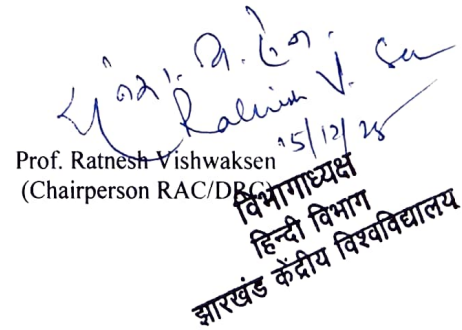 Ratnesh V. Sen
15/12/25
Prof. Ratnesh Vishwaksen
(Chairperson RAC/DRC)
विभागाध्यक्ष
हिन्दी विभाग
झारखंड केंद्रीय विश्वविद्यालय